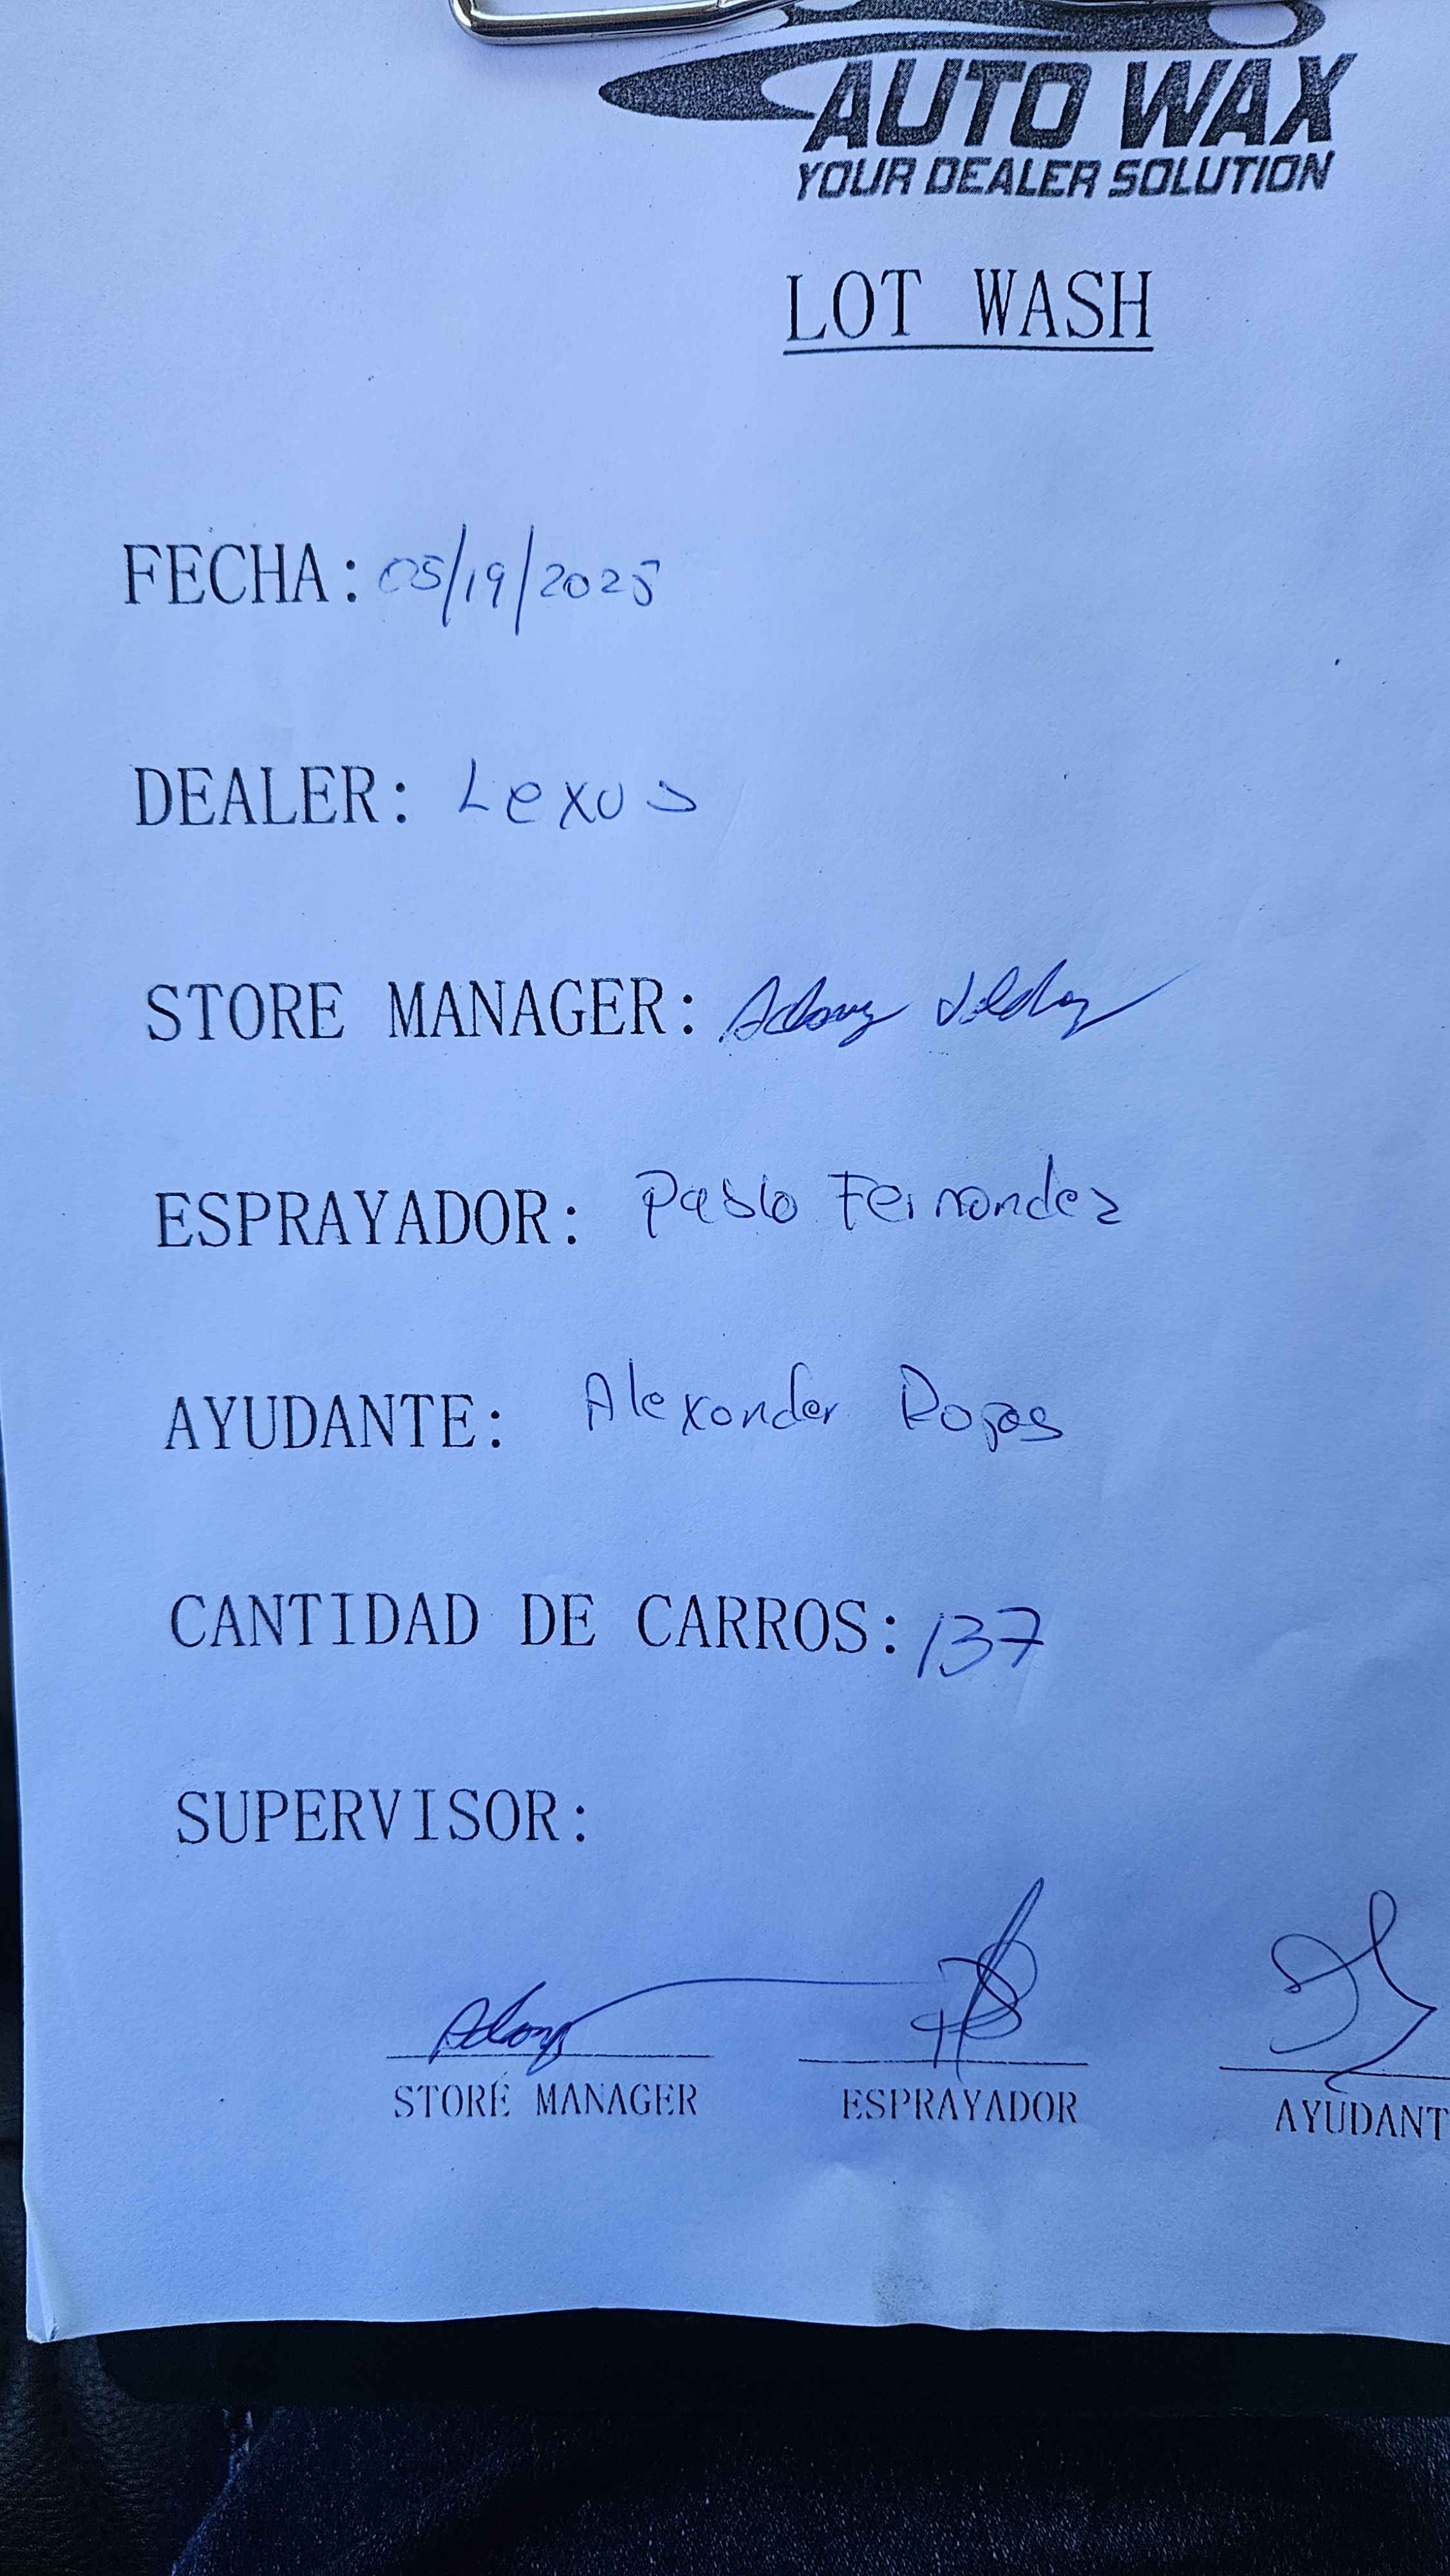 AUTO WAX
YOUR DEALER SOLUTION
LOT WASH
FECHA: 05/19/2025
DEALER: Lexus
STORE MANAGER:
ESPRAYADOR: Pablo Fernandez
AYUDANTE: Alexander Rojas
CANTIDAD DE CARROS: 137
SUPERVISOR:
STORE MANAGER ESPRAYADOR AYUDANT